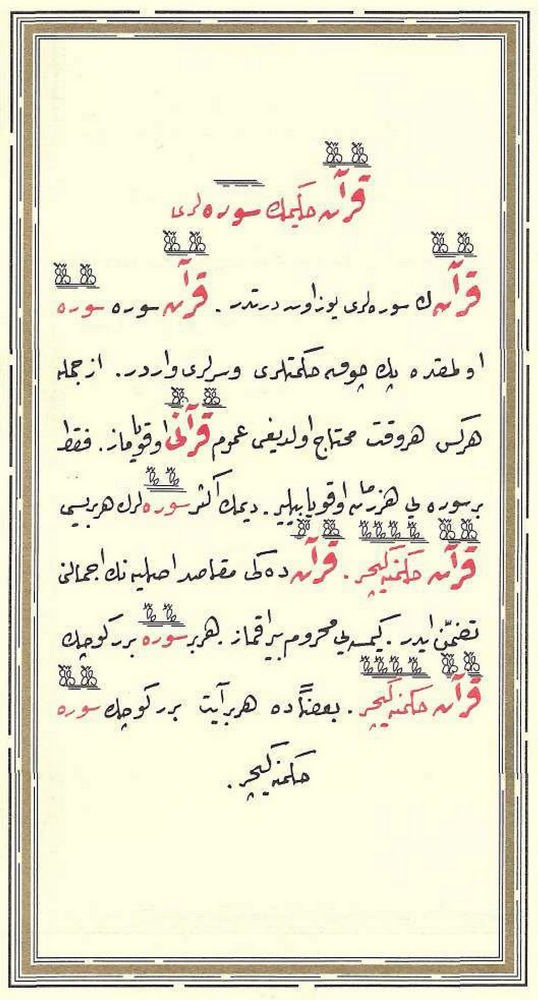 قرآن حكيمك سوره لرى
قرآنك سوره لرى يوز اون درتدر . قرآن سوره سوره
اولمقده پك چوق حكمتلرى وسرلرى واردر . از جمله
هركس هر وقت محتاج اولديغى عموم قرآنى اوقوياماز . فقط
بر سوره يى هر زمان اوقويابيلير . ديمك اكثر سوره لرك هربريسى
قرآن حكمنه كچر . قرآن ده كى مقاصد اصليه نك اجمالنى
تضمّن ايدر . كيمسه يى محروم بيراقماز . هر بر سوره بر كوچك
قرآن حكمنه كچر . بعضاً ده هر بر آيت بر كوچك سوره
حكمنه كچر .